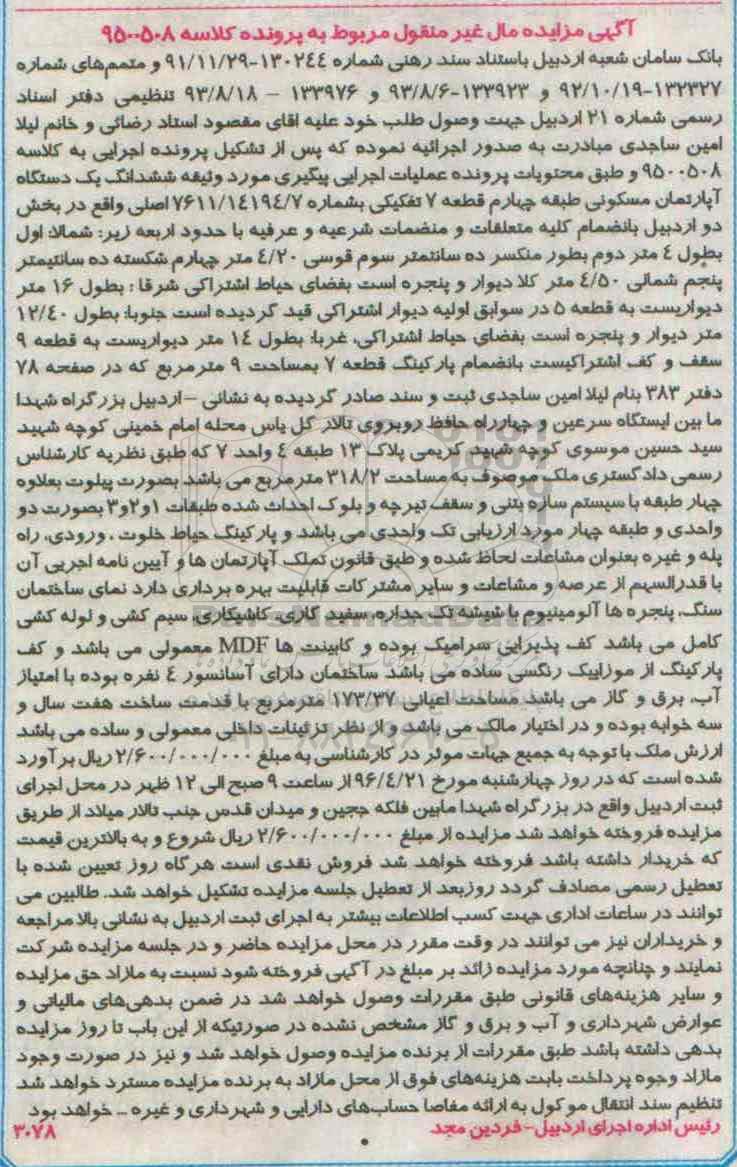 آگهی مزایده مال غیر منقول مربوط به پرونده کلاسه ۹۵۰۰۵۰۸
بانک سامان شعبه اردبیل باستناد سند رهنی شماره ۱۳۰۲۴۴-۹۱/۱۱/۲۹ و متمم‌های شماره
۱۳۲۳۲۷-۹۲/۱۰/۱۹ و ۱۳۳۹۲۳-۹۳/۸/۶ و ۱۳۳۹۷۶ – ۹۳/۸/۱۸ تنظیمی دفتر اسناد
رسمی شماره ۲۱ اردبیل جهت وصول طلب خود علیه اقای مقصود استاد رضائی و خانم لیلا
امین ساجدی مبادرت به صدور اجرائیه نموده که پس از تشکیل پرونده اجرایی به کلاسه
۹۵۰۰۵۰۸ و طبق محتویات پرونده عملیات اجرایی پیگیری مورد وثیقه ششدانگ یک دستگاه
آپارتمان مسکونی طبقه چهارم قطعه ۷ تفکیکی بشماره ۷۶۱۱/۱۴۱۹۴/۷ اصلی واقع در بخش
دو اردبیل بانضمام کلیه متعلقات و منضمات شرعیه و عرفیه با حدود اربعه زیر: شمالا: اول
بطول ٤ متر دوم بطور منکسر ده سانتمتر سوم قوسی ٤/۲۰ متر چهارم شکسته ده سانتیمتر
پنجم شمالی ٤/٥۰ متر کلا دیوار و پنجره است بفضای حیاط اشتراکی شرقا : بطول ۱۶ متر
دیواریست به قطعه ٥ در سوابق اولیه دیوار اشتراکی قید گردیده است جنوبا: بطول ۱۲/٤۰
متر دیوار و پنجره است بفضای حیاط اشتراکی، غربا: بطول ۱٤ متر دیواریست به قطعه ۹
سقف و کف اشتراکیست بانضمام پارکینگ قطعه ۷ بمساحت ۹ مترمربع که در صفحه ۷۸
دفتر ۳۸۳ بنام لیلا امین ساجدی ثبت و سند صادر گردیده به نشانی –اردبیل بزرگراه شهدا
ما بین ایستگاه سرعین و چهارراه حافظ روبروی تالار گل یاس محله امام خمینی کوچه شهید
سید حسین موسوی کوچه شهید کریمی پلاک ۱۳ طبقه ٤ واحد ۷ که طبق نظریه کارشناس
رسمی دادگستری ملک موصوف به مساحت ۳۱۸/۲ مترمربع می باشد بصورت پیلوت بعلاوه
چهار طبقه با سیستم سازه بتنی و سقف تیرچه و بلوک احداث شده طبقات ۱و۲و۳ بصورت دو
واحدی و طبقه چهار مورد ارزیابی تک واحدی می باشد و پارکینگ حیاط خلوت ، ورودی، راه
پله و غیره بعنوان مشاعات لحاظ شده و طبق قانون تملک آپارتمان ها و آیین نامه اجریی آن
با قدرالسهم از عرصه و مشاعات و سایر مشترکات قابلیت بهره برداری دارد نمای ساختمان
سنگ، پنجره ها آلومینیوم با شیشه تک جداره، سفید کاری، کاشیکاری، سیم کشی و لوله کشی
کامل می باشد کف پذیرایی سرامیک بوده و کابینت ها MDF معمولی می باشد و کف
پارکینگ از موزاییک رنگسی ساده می باشد ساختمان دارای آسانسور ٤ نفره بوده با امتیاز
آب، برق و گاز می باشد مساحت اعیانی ۱۷۳/۳۷ مترمربع با قدمت ساخت هفت سال و
سه خوابه بوده و در اختیار مالک می باشد و از نظر تزئینات داخلی معمولی و ساده می باشد
ارزش ملک با توجه به جمیع جهات موثر در کارشناسی به مبلغ ۲/۶۰۰/۰۰۰/۰۰۰ ریال برآورد
شده است که در روز چهارشنبه مورخ ۹۶/٤/۲۱ از ساعت ۹ صبح الی ۱۲ ظهر در محل اجرای
ثبت اردبیل واقع در بزرگراه شهدا مابین فلکه ججین و میدان قدس جنب تالار میلاد از طریق
مزایده فروخته خواهد شد مزایده از مبلغ ۲/۶۰۰/۰۰۰/۰۰۰ ریال شروع و به بالاترین قیمت
که خریدار داشته باشد فروخته خواهد شد فروش نقدی است هرگاه روز تعیین شده با
تعطیل رسمی مصادف گردد روزبعد از تعطیل جلسه مزایده تشکیل خواهد شد. طالبین می
توانند در ساعات اداری جهت کسب اطلاعات بیشتر به اجرای ثبت اردبیل به نشانی بالا مراجعه
و خریداران نیز می توانند در وقت مقرر در محل مزایده حاضر و در جلسه مزایده شرکت
نمایند و چنانچه مورد مزایده زائد بر مبلغ در آگهی فروخته شود نسبت به مازاد حق مزایده
و سایر هزینه‌های قانونی طبق مقررات وصول خواهد شد در ضمن بدهی‌های مالیاتی و
عوارض شهرداری و آب و برق و گاز مشخص نشده در صورتیکه از این باب تا روز مزایده
بدهی داشته باشد طبق مقررات از برنده مزایده وصول خواهد شد و نیز در صورت وجود
مازاد وجوه پرداخت بابت هزینه‌های فوق از محل مازاد به برنده مزایده مسترد خواهد شد
تنظیم سند انتقال موکول به ارائه مفاصا حساب‌های دارایی و شهرداری و غیره ... خواهد بود
رئیس اداره اجرای اردبیل- فردین مجد
۳۰۷۸